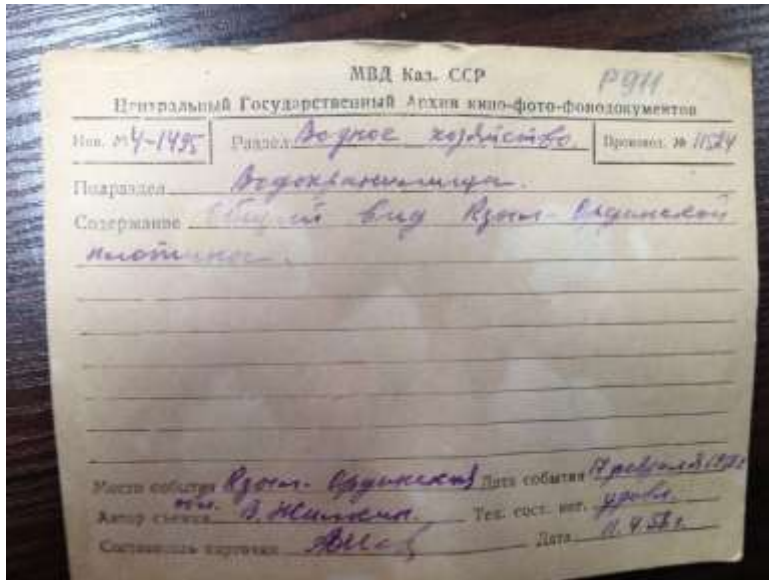 МВД Каз. ССР
Р911
Центральный Государственный Архив кино-фото-фонодокументов
Инв. № 4-1495 Раздел Водное хозяйство. Производ. № 11524
Подраздел Водохранилища.
Содержание Общий вид Кзыл-Ординской
плотиной.
Место события Кзыл-Ординская Дата события 17 февраля
пл.
Автор съемки В. Тех. сост. нег. удовл.
Составитель карточки Дата 11.4.